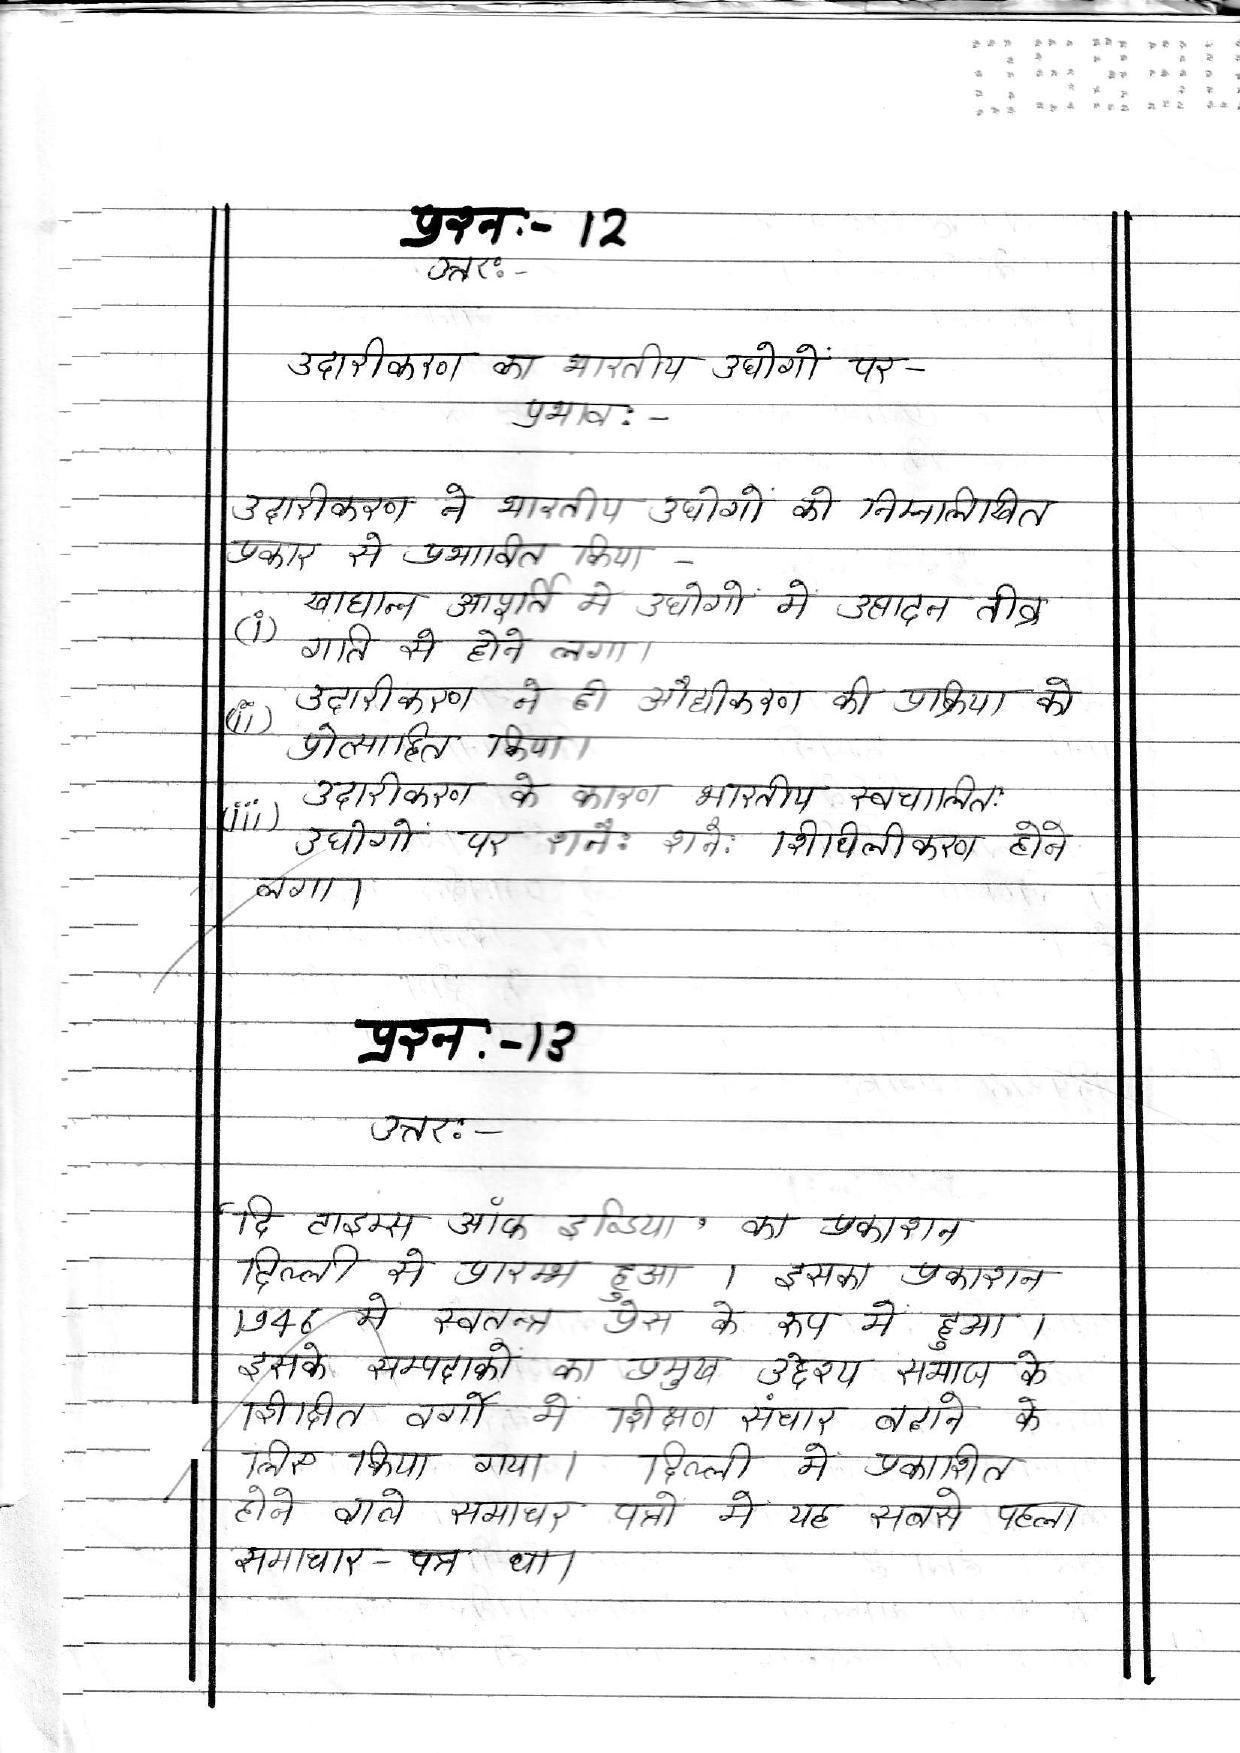 प्रश्न:- 12
उत्तर:-
उदारीकरण का भारतीय उद्योगों पर -
प्रभाव: -
उदारीकरण ने भारतीय उद्योगों को निम्नालिखित
प्रकार से प्रभावित किया -
(i) खाद्यान्न आपूर्ति मे उद्योगों में उत्पादन तीव्र
गति से होने लगा।
(ii) उदारीकरण ने ही औद्यीकरण की प्रक्रिया को
प्रोत्साहित किया।
(iii) उदारीकरण के कारण भारतीय स्वचालित:
उद्योगों पर शनै: शनै: शिथिलीकरण होने
लगा।
प्रश्न :-13
उत्तर: -
'दि टाइम्स ऑफ इण्डिया' का प्रकाशन
दिल्ली से प्रारम्भ हुआ । इसका प्रकाशन
1946 मे स्वतन्त्र प्रेस के रूप में हुआ ।
इसके सम्पदाकों का प्रमुख उद्देश्य समाज के
शिक्षित वर्गों में शिक्षण संचार बढाने के
लिए किया गया। दिल्ली में प्रकाशित
होने वाले समाचर पत्रों में यह सबसे पहला
समाचार - पत्र था।